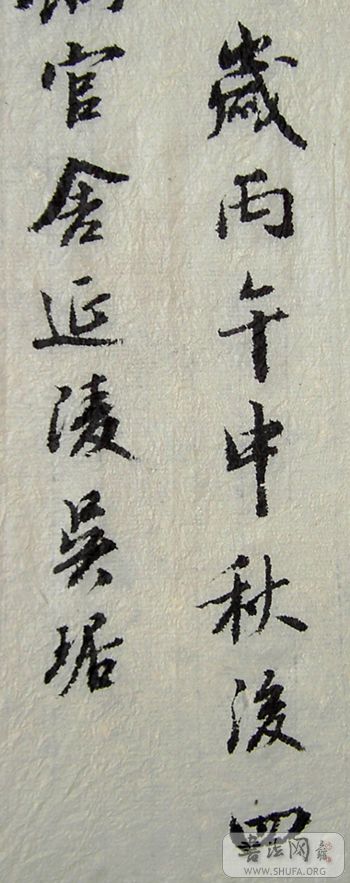 歲丙午中秋後四
官舍延陵吳琚
書法网
WWW.SHUFA.ORG